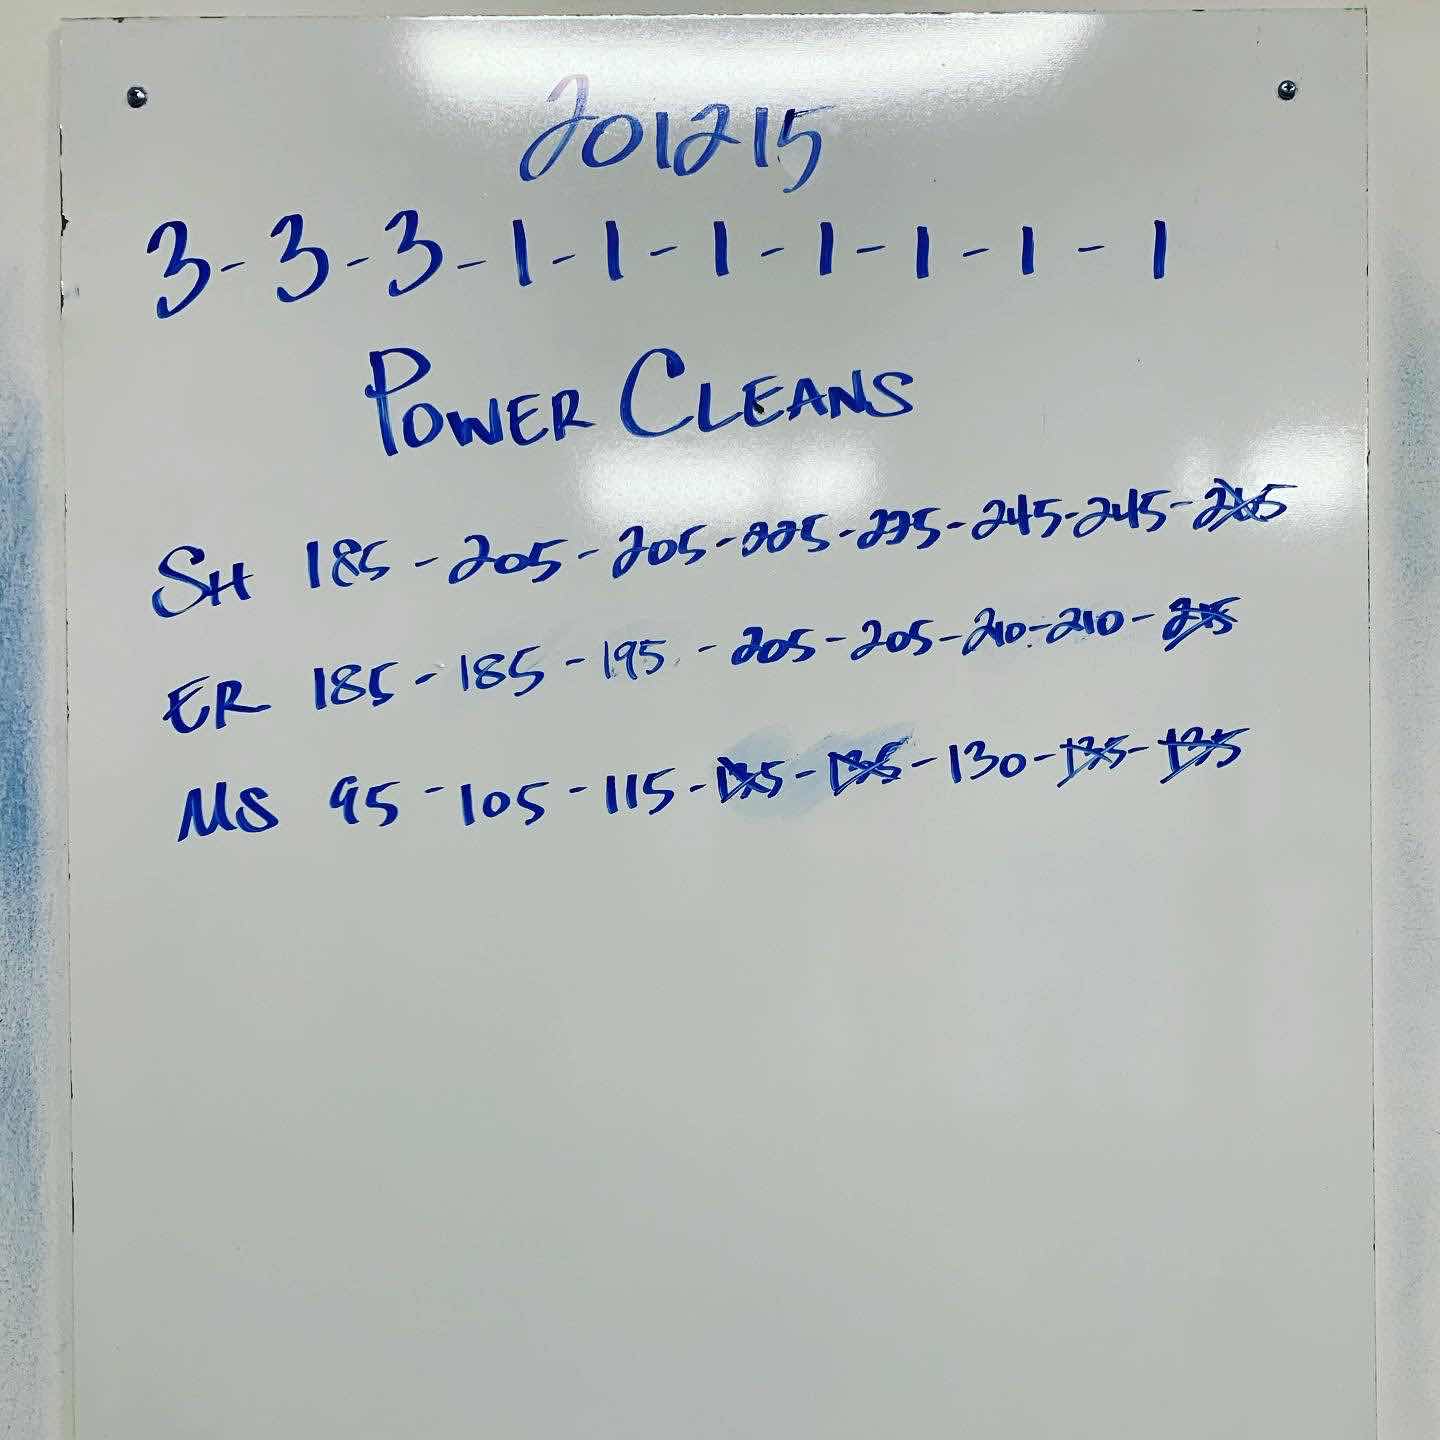 201215
3-3-3-1-1-1-1-1-1-1
POWER CLEANS
SH 185-205-205-225-235-245-245-265
ER 185-185-195-205-205-210-210-215
MS 95-105-115-135-135-130-135-135